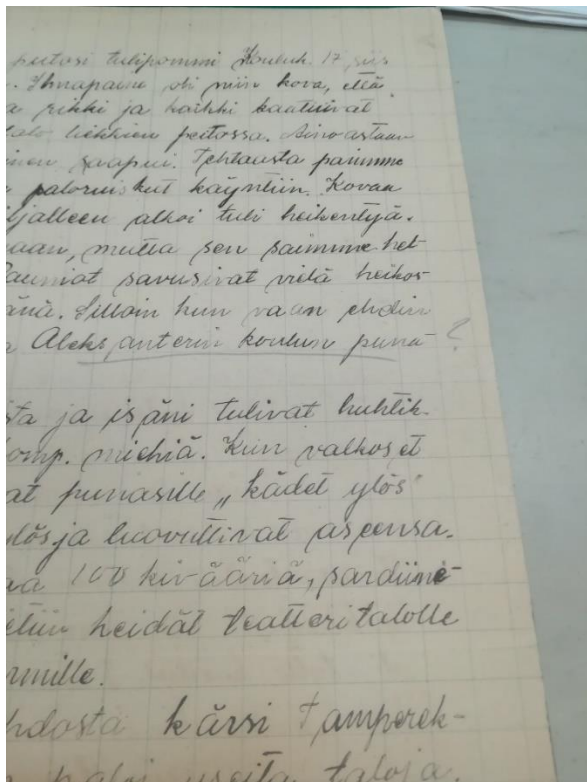 putosi tulipommi Kouluk. 17, siis
. Ilmapaine oli niin kova, että
a rikki ja kaikki kaatuivat
talo liekkien peitossa. Ainoastaan
inen saapui. Tehtaasta panimme
paloruiskut käyntiin. Kovaa
iljalleen alkoi tuli heikentyä.
aan, mutta sen saimme het-
Rauniot savusivat vielä heikos-
änä. Silloin kun vaan ehdin
a Aleksanterin koulun puna- ?
sta ja isäni tulivat huhtik.
omp. miehiä. Kun valkoset
at punasille „kädet ylös"
ylös ja luovuttivat aseensa.
aa 100 kivääriä, sardiini-
etiin heidät teatteritalolle
rmille.
hdosta kärsi Tamperek-
paloi useita taloja